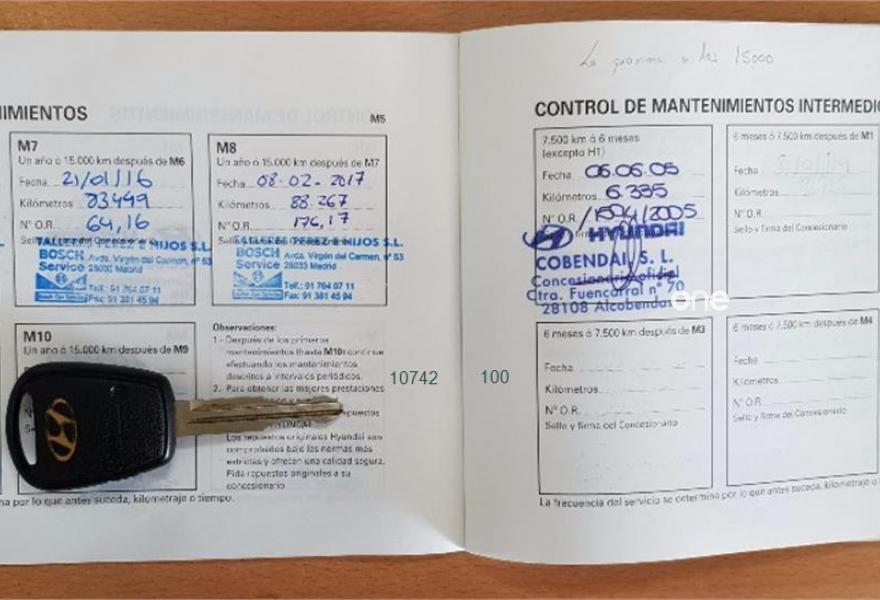 IMIENTOS
M5
M7
Un año ó 15.000 km después de M6
Fecha 21/01/16
Kilómetros 83449
N° O.R. 64,16
TALLERES PEREZ E HIJOS S.L.
BOSCH Avda. Virgén del Carmen, n° 53
Service 28033 Madrid
Telf.: 91 764 07 11
Fax: 91 381 45 94
M8
Un año ó 15.000 km después de M7
Fecha 08-02-2017
Kilómetros 88.267
N° O.R. 176,17
TALLERES PEREZ E HIJOS S.L.
BOSCH Avda. Virgén del Carmen, n° 53
Service 28033 Madrid
Telf.: 91 764 07 11
Fax: 91 381 45 94
M10
Un año ó 15.000 km después de M9
Observaciones:
1.- Después de los primeros
mantenimientos (hasta M10) continúe
efectuando los mantenimientos
descritos a intervalos periódicos.
2. Para obtener las mejores prestaciones
repuestos
HYUNDAI
Los repuestos originales Hyundai son
comprobados bajo las normas más
estrictas y ofrecen una calidad segura.
Pida repuestos originales a su
concesionario
na por lo que antes suceda, kilometraje o tiempo.
10742
100
a los 15000
CONTROL DE MANTENIMIENTOS INTERMEDIO
7.500 km ó 6 meses
(excepto H1)
Fecha 06.06.05
Kilómetros 6.395
N° O.R. /1504/2005
HYUNDAI
COBENDAI, S. L.
Concesionario oficial
Ctra. Fuencarral n° 70
28108 Alcobendas
one
6 meses ó 7.500 km después de M1
Fecha
Kilómetros
N° O.R.
Sello y firma del Concesionario
6 meses ó 7.500 km después de M3
Fecha
Kilómetros
N° O.R.
Sello y firma del Concesionario
6 meses ó 7.500 km después de M4
Fecha
Kilómetros
N° O.R.
Sello y firma del Concesionario
La frecuencia del servicio se determina por lo que antes suceda, kilometraje o